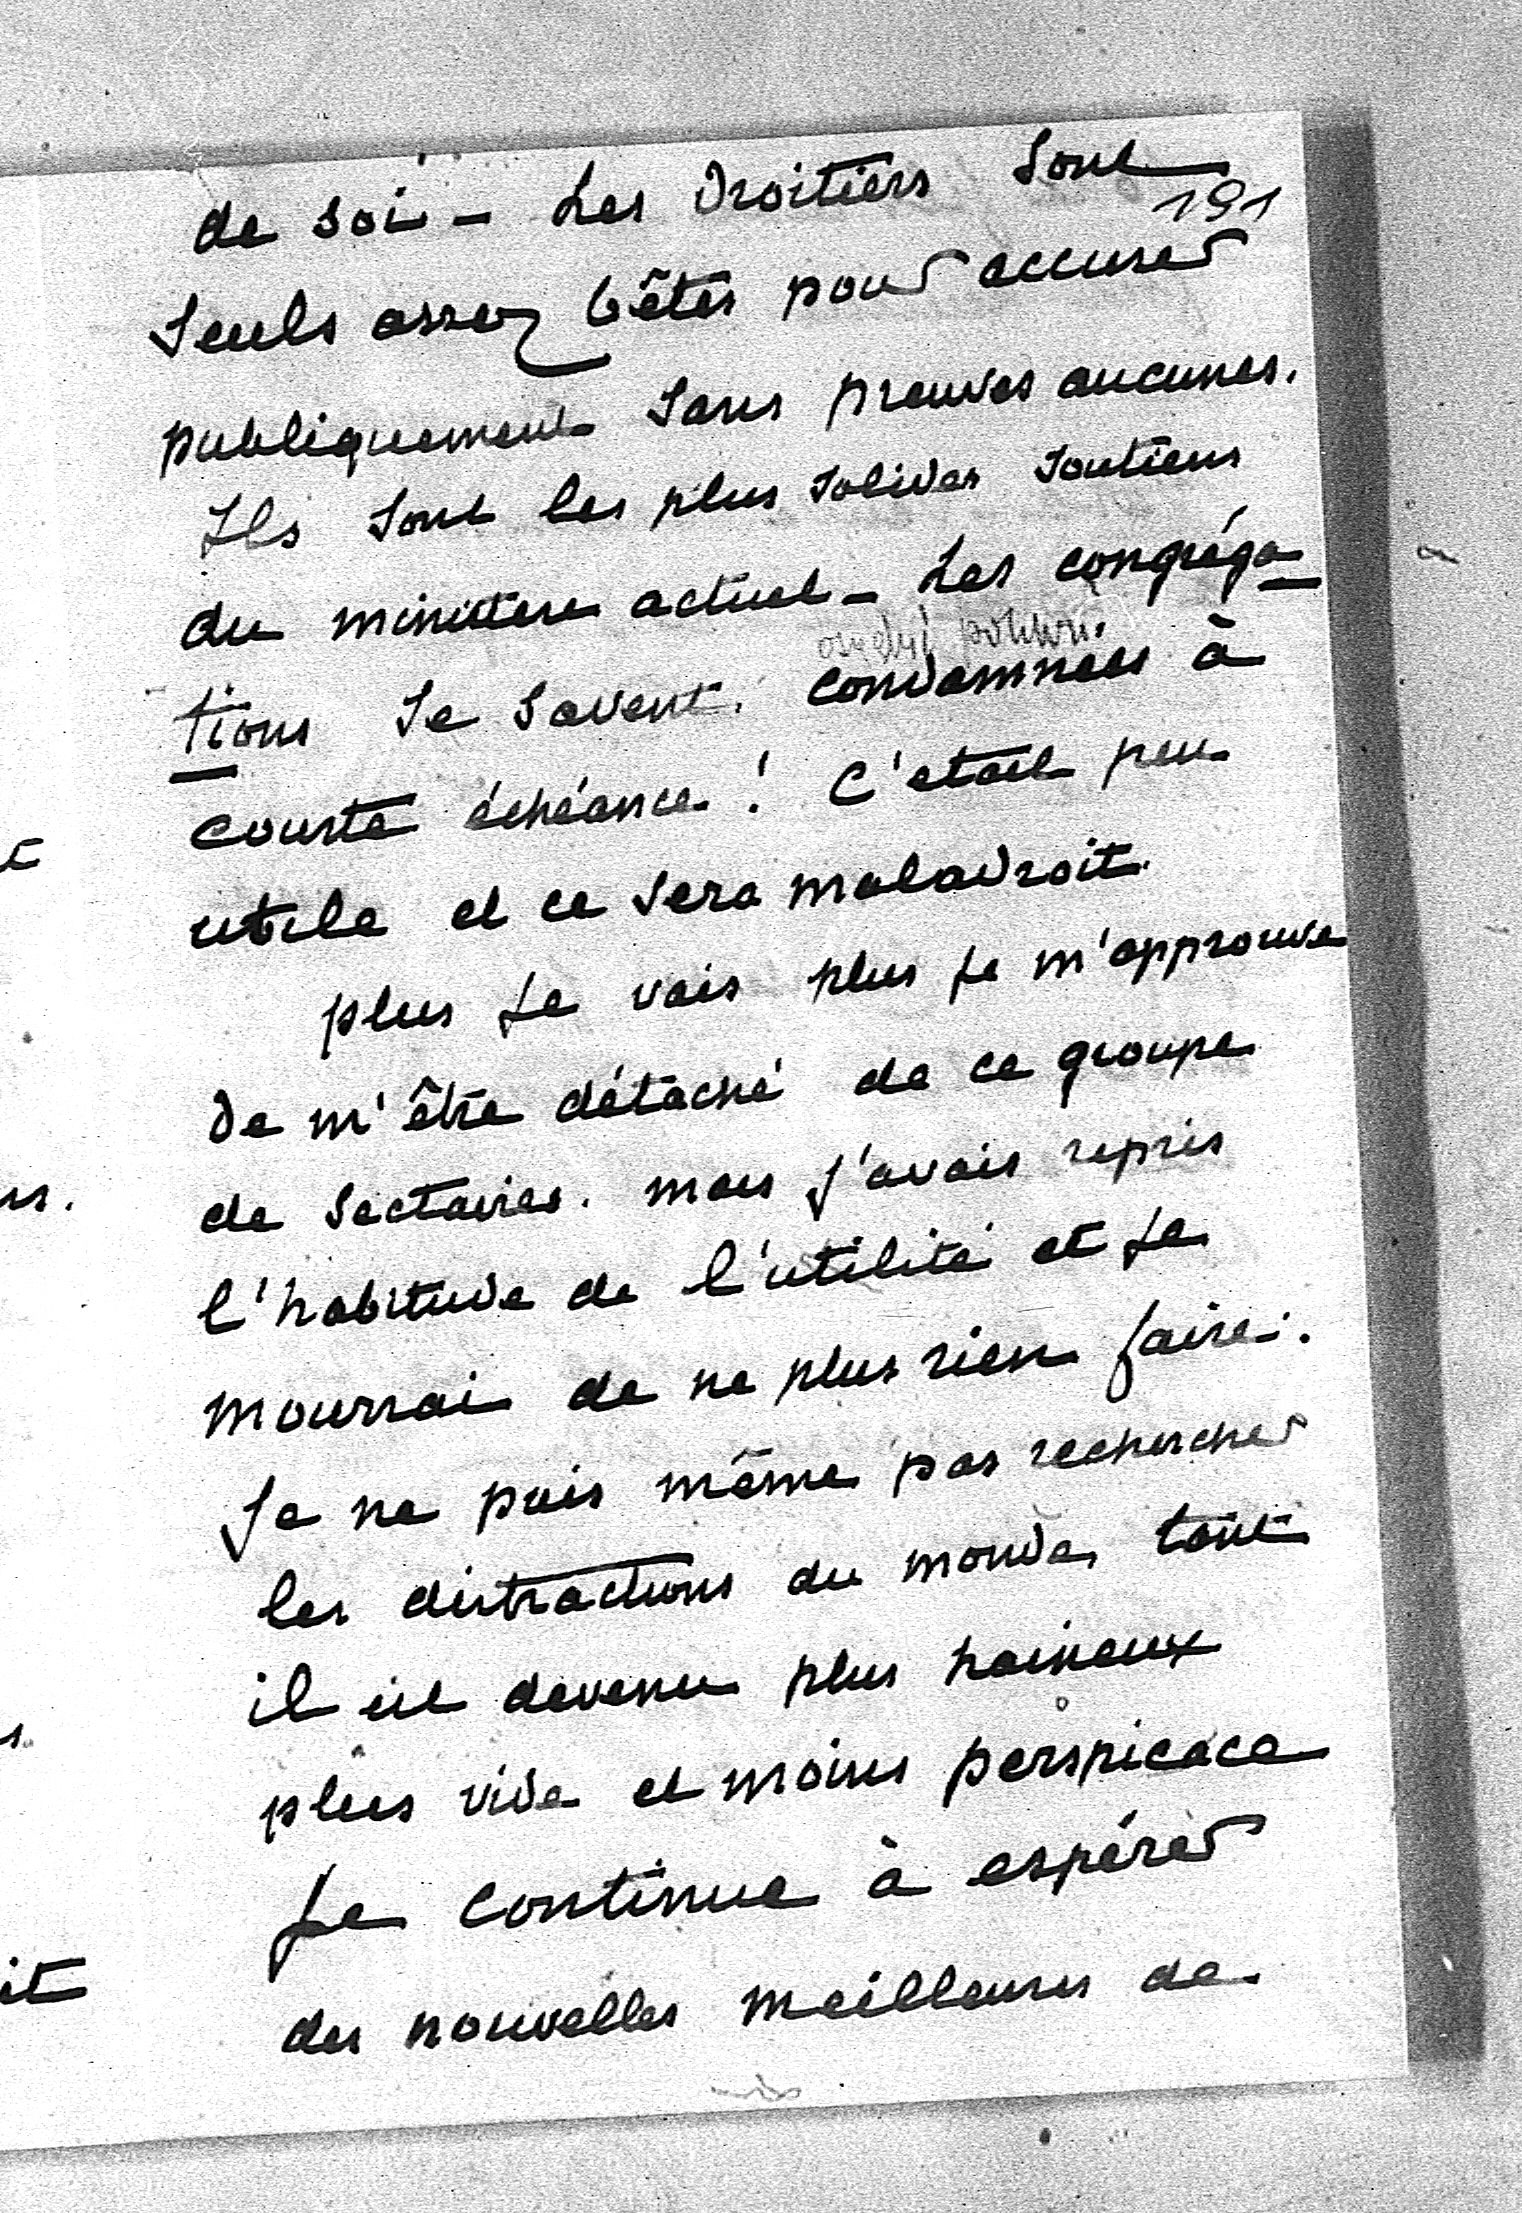 de soi - Les Droitiers sont
191
seuls assez bêtes pour accuser
publiquement sans preuves aucunes.
Ils sont les plus solides soutiens
du ministere actuel - Les congréga
tions se savent condamnées à
courte échéance ! C'etait peu
utile et ce sera maladroit.
plus je vais plus je m'approuve
de m'être détaché de ce groupe
de sectaires. mais j'avais repris
l'habitude de l'utilité et je
mourrai de ne plus rien faire.
Je ne puis même pas rechercher
les distractions du monde, tant
il est devenu plus haineux
plus vide et moins perspicace
Je continue à espérer
des nouvelles meilleures de